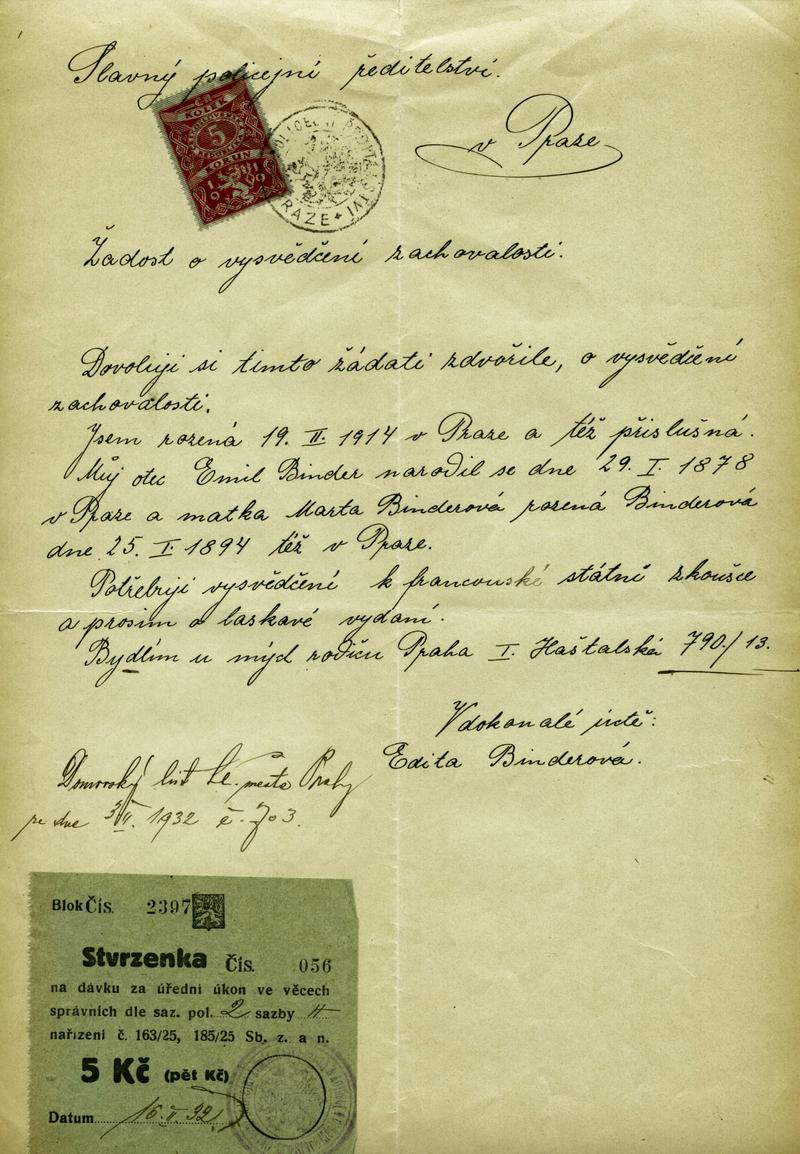 Slavný policejní ředitelství.
ČR.
KOLEK
5
KORUN
1919
v Praze
POLICEJNÍ ŘEDITELSTVÍ
PRAZE
Žádost o vysvědčení zachovalosti.
Dovoluji si timto žádati zdvořile, o vysvědčení
zachovalosti.
Jsem rozená 19. II. 1914 v Praze a též příslušná.
Můj otec Emil Binder narodil se dne 29. I. 1878
v Praze a matka Marta Binderová rozená Binderová
dne 25. I. 1894 též v Praze.
Potřebuji vysvědčení k francouské státní zkoušce
a prosim o laskavé vydaní.
Bydlím u mých rodičů Praha I. Haštalská 790./13.
V dokonalé úctě:
Edita Binderová.
Domovský list hl. města Prahy
ze dne 1932 č. 703.
Blok Čís. 2397
Stvrzenka Čís. 056
na dávku za úřední úkon ve věcech
správních dle saz. pol. 2 sazby
nařízení č. 163/25, 185/25 Sb. z. a n.
5 Kč (pět Kč)
Datum 16. II. 32